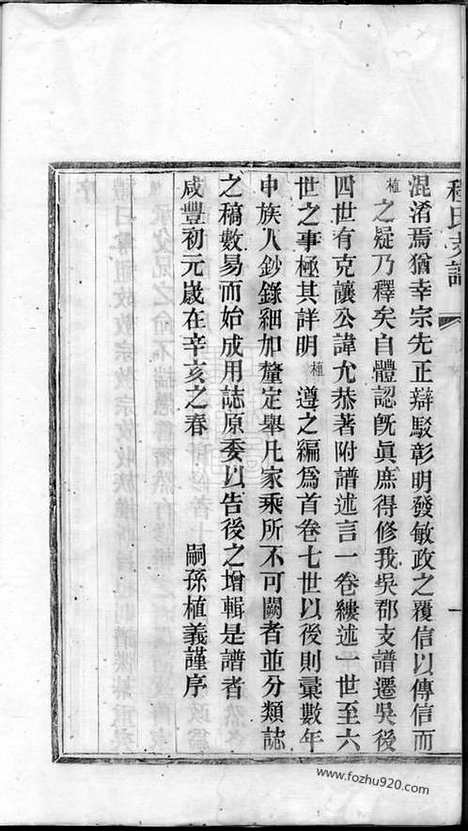 程氏支譜
混淆焉猶幸宗先正辯駁彰明發敏政之覆信以傳信而
植之疑乃釋矣自體認旣眞庶得修我吳郡支譜遷吳後
四世有克讓公諱允恭著附譜述言一卷縷述一世至六
世之事極其詳明植遵之編爲首卷七世以後則彙數年
中族人鈔錄細加釐定舉凡家乘所不可闕者並分類誌
之稿數易而始成用誌原委以告後之增輯是譜者
咸豐初元歲在辛亥之春 嗣孫植義謹序
www.fozhu920.com